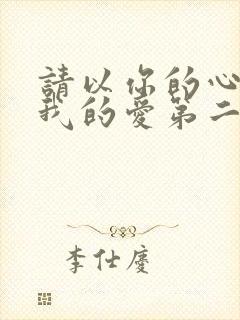 請以你的心
我的愛第二
李仕慶